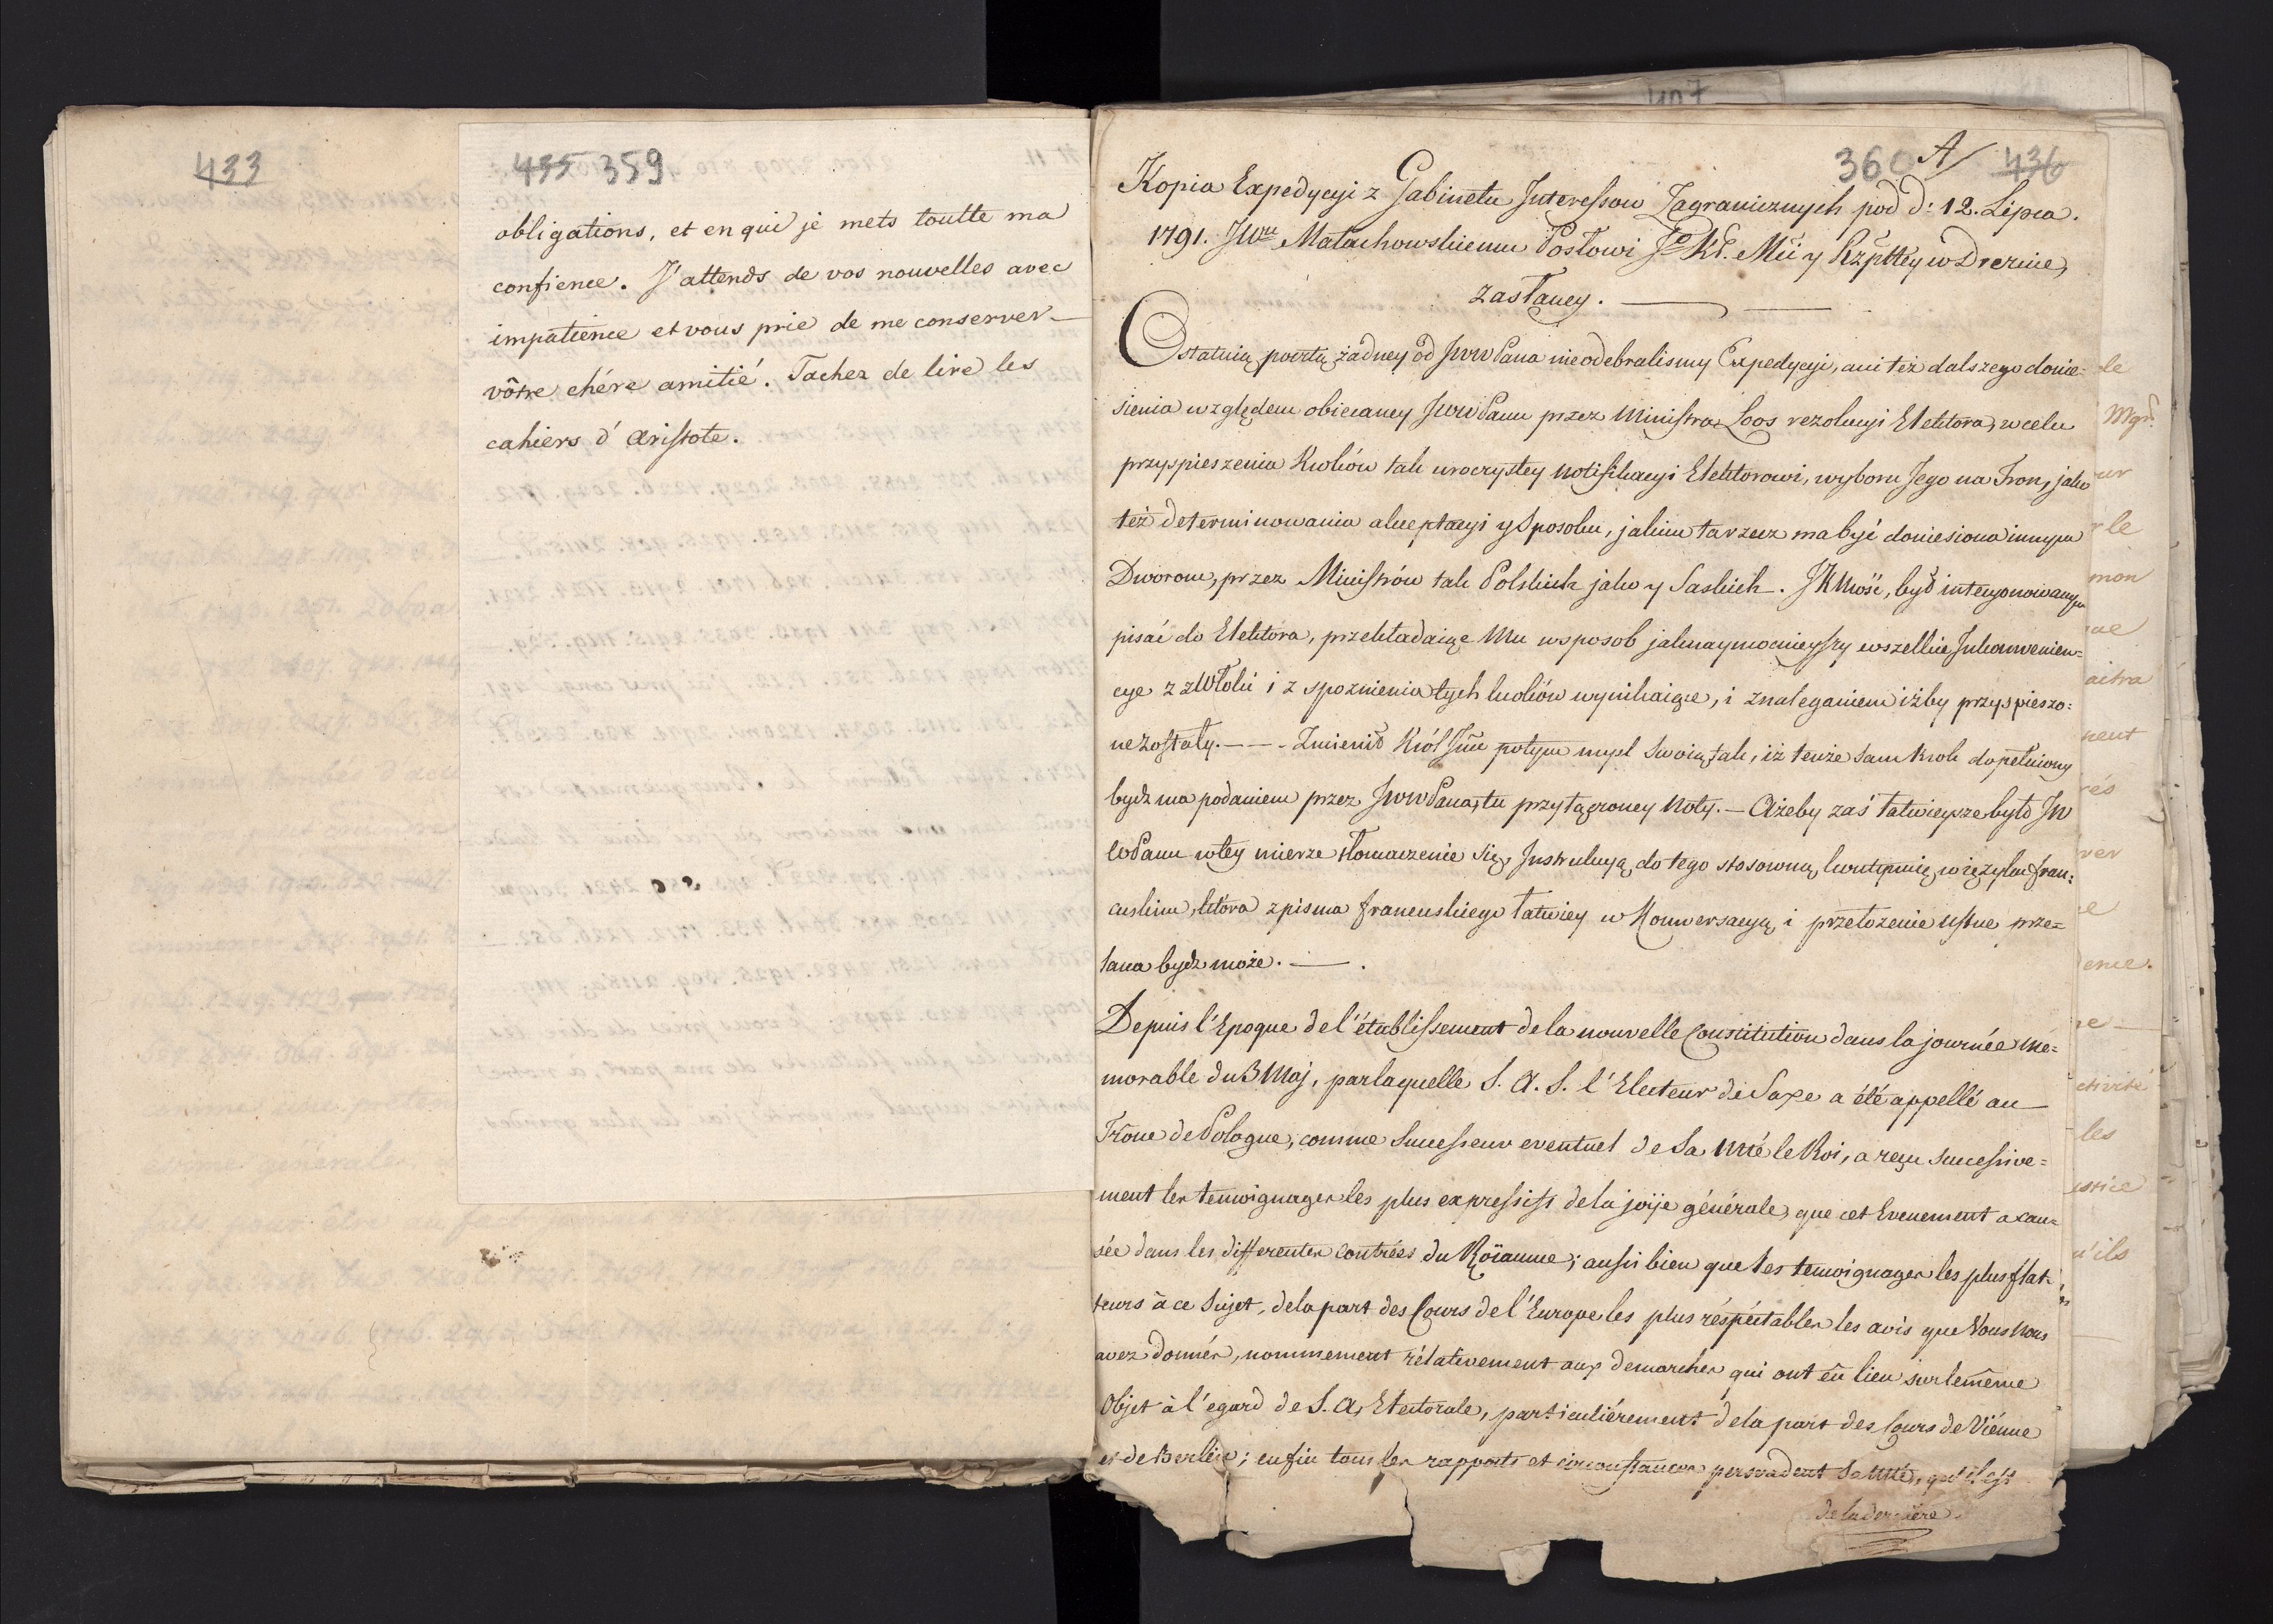 433
435 359
obligations, et en qui je mets toutte ma
confience. J'attends de vos nouvelles avec
impatience et vous prie de me conserver
vôtre chére amitié. Tachez de lire les
cahiers d'Aristote.
360 A/ 436
Kopia Expedycyi z Gabinetu Interessow Zagranicznych pod d: 12. Lipca.
1791. JWu Małachowskiemu Posłowi JoKr. Mći y Rzpltey w Dreznie,
zasłaney.
Ostatnią pocztą żadney od JWWPana nieodebralismy Expedycyi, ani też dalszego donie=
sienia względem obiecaney JWWPanu przez Ministra Loos rezolucyi Elektora, w celu
przyspieszenia Krokow tak uroczystey Notifikacyi Elektorowi, wyboru Jego na Tron, jako
też determinowania akceptacyi y Sposobu, jakim ta rzecz ma być doniesiona innym
Dworom, przez Ministrów tak Polskich jako y Saskich. JKMość, był intencyonowanym
pisać do Elektora, przekładaiąc Mu wsposob jaknaymocnieyszy wszelkie Inkonwenien=
cye z zwłoki i z spoznienia tych kroków wynikaiące, i znaleganiem iżby przyspieszo=
ne zostały. Zmienił Król Jmć potym mysl Swoią tak, iż tenże sam krok dopełniony
bydz ma podaniem przez JWWPana, tu przyłączoney Noty. — Ażeby zaś łatwieysze było JW
WPanu w tey mierze tłomaczenie się, Instrukcyą do tego stosowną, kontynuię w ięzyku fran=
cuskim, która z pisma francuskiego łatwiey w Konwersacyą, i przełożenie ustne prze=
lana bydz może.
Depuis l'Epoque de l'établissement de la nouvelle Constitution dans la journée mé=
morable du 3 Maj, par laquelle S. A. S. l'Electeur de Saxe a été appellé au
Trône de Pologne, comme Successeur eventuel de Sa Mté le Roi, a reçu successive=
ment les temoignages les plus expressifs de la joïje générale, que cet Evenement a cau=
sée dans les differentes contrées du Roïaume; aussi bien que les temoignages les plus flat=
teurs à ce Sujet, de la part des Cours de l'Europe les plus réspéctables les avis que Vous Nous
avez donnés, nommement rélativement aux demarches qui ont eû lieu sur le même
Objet à l'egard de S. A. Electorale, particuliérement de la part des Cours de Viénne
et de Berlin; enfin tous les rapports et circonstances persuadent Sa Mté, qu'il est
de la derniere